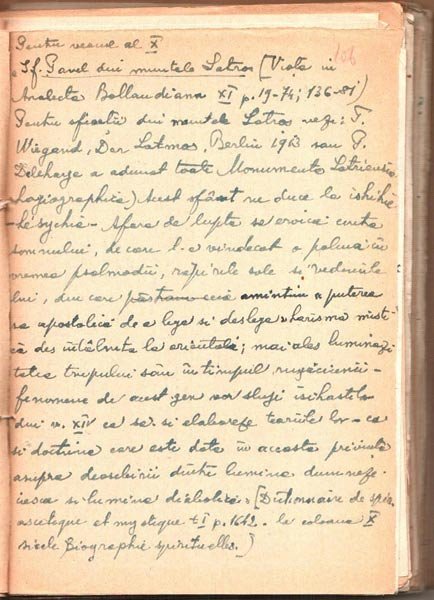 Pentru veacul al X
106
Sf. Pavel din muntele Latros [Viața in
Analecta Bollandiana XI p. 19-74; 136-81)
Pentru sfinții din muntele Latros vezi: T.
Wiegand, Der Latmos, Berlin 1913 sau P.
Delehaye a adunat toate Monumenta Latrensia
hagiographica) Acest sfânt ne duce la isihie
- hésychia - Afara de lupta sa eroica contra
somnului, de care l-a vindecat o palma in
vremea psalmodii, răpirile sale si vedeniile
lui, din care amintim puterea
sa apostolică de a lega si deslega harisma misti-
că des întâlnită la orientali; mai ales luminozi-
tatea trupului său în timpul rugăciunii -
fenomene de acest gen vor sluji isihastilor
din v. XIV ca să-si elaboreze teoriile lor - ca
si doctrina care este data în aceasta privinta
asupra deosebirii dintre lumina dumneze-
iasca si lumina diabolica [Dictionnaire de spir.
ascetique et mystique t I p. 1642. la coloana X
siècle Biographie spirituelles.)